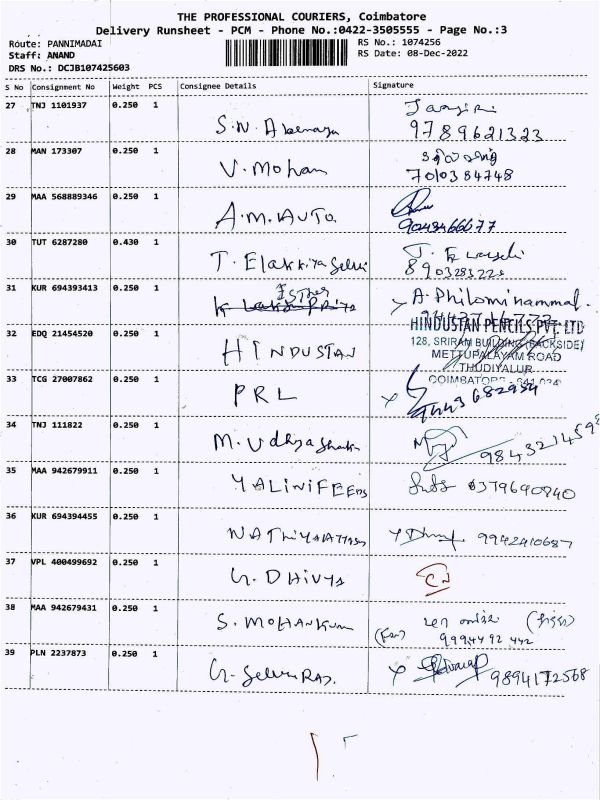 THE PROFESSIONAL COURIERS, Coimbatore
Delivery Runsheet - PCM - Phone No.:0422-3505555 - Page No.:3
Route: PANNIMADAI RS No.: 1074256
Staff: ANAND RS Date: 08-Dec-2022
DRS No.: DCJB107425603
S No Consignment No Weight PCS Consignee Details Signature
27 TNJ 1101937 0.250 1
S.N. 9789621323
28 MAN 173307 0.250 1
V. Mohan 7010384748
29 MAA 568889346 0.250 1
A.M. AUTO
30 TUT 6287280 0.430 1
T. Elakkiya Selvi
31 KUR 694393413 0.250 1
Esther A. Philominammal
HINDUSTAN PENCILS PVT. LTD
32 EDQ 21454520 0.250 1 128, SRIRAM BUILDING (BACKSIDE)
HINDUSTAN METTUPALAYAM ROAD
THUDIYALUR
33 TCG 27007862 0.250 1 COIMBATORE - 641 034
PRL 9443682934
34 TNJ 111822 0.250 1
M. 9843214598
35 MAA 942679911 0.250 1
YALINI FEEDS 6379690840
36 KUR 694394455 0.250 1
9942410687
37 VPL 400499692 0.250 1
G. DHIVYA
38 MAA 942679431 0.250 1
S. MOHANKUM
9994492442
39 PLN 2237873 0.250 1
G. Selvu Raj. 9894172568